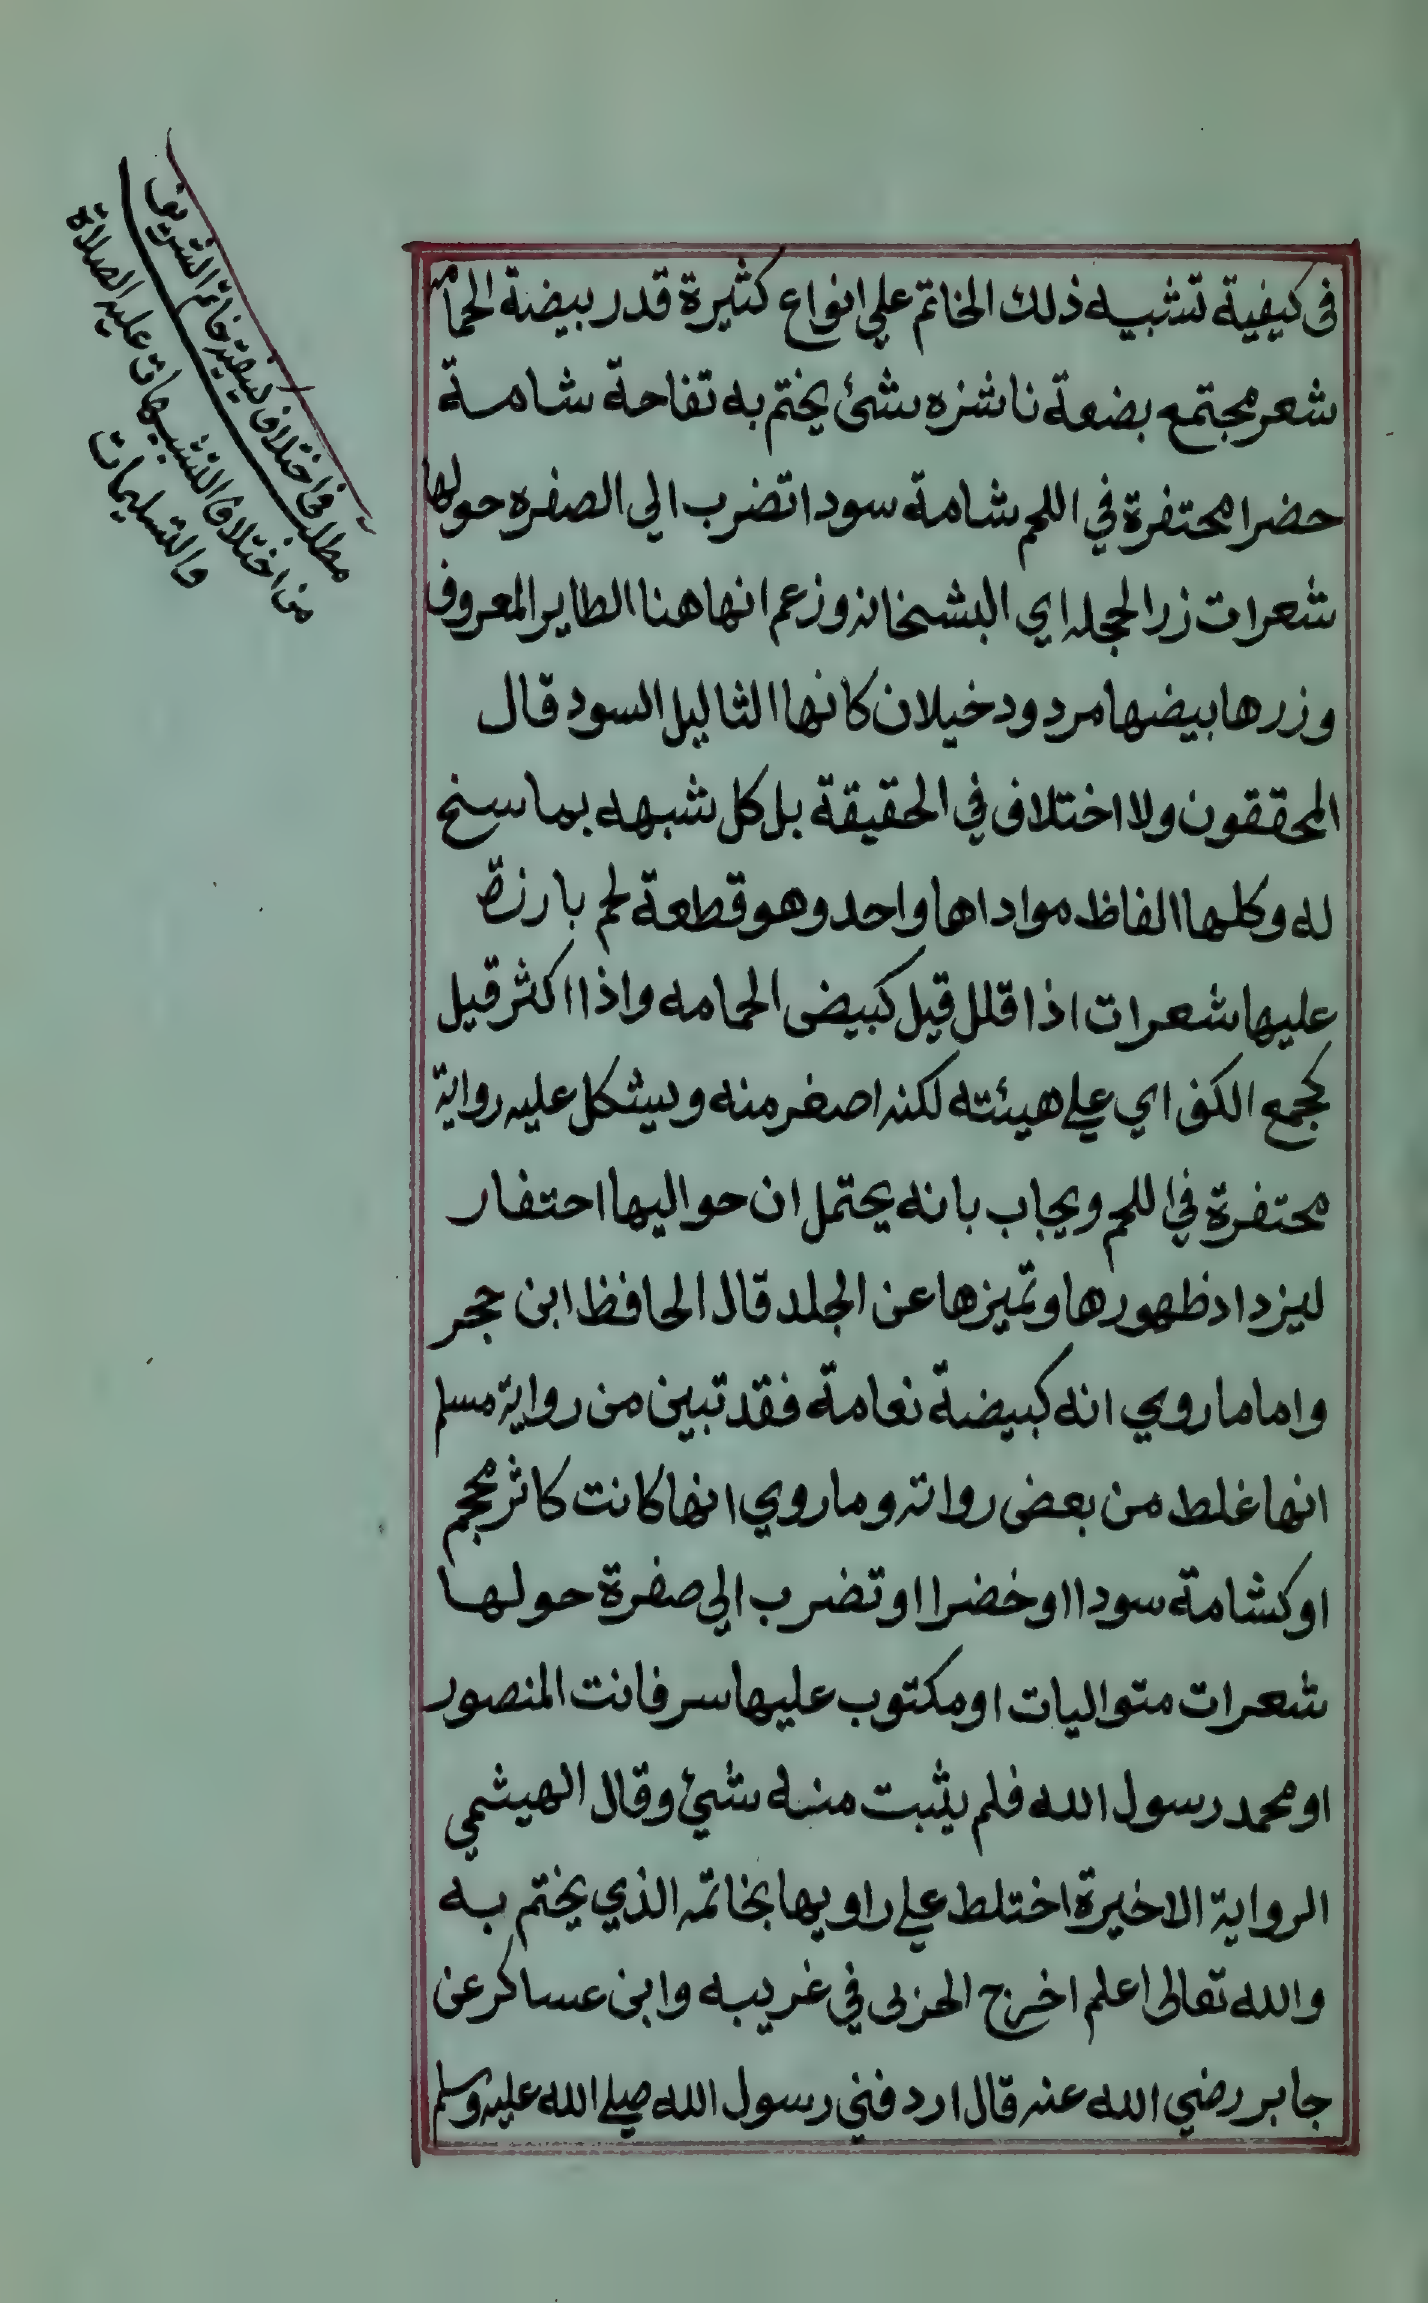 في كيفية تشبيه ذلك الخاتم علي انواع كثيرة قدر بيضة الحمامه
شعر مجتمع بضعة ناشزه شئ يختم به تفاحة شامة
حضرا محتفرة في اللحم شامة سودا تضرب الي الصفره حولها
شعرات زر الحجله اي البشخانه وزعم انها هنا الطاير المعروف
وزرها بيضها مردود خيلان كانها الثاليل السود قال
المحققون ولا اختلاف في الحقيقة بل كل شبهه بما سنح
له وكلها الفاظ مواداها واحد وهو قطعة لحم بارزة
عليها شعرات اذا قلل قيل كبيضى الحمامه واذا اكثر قيل
كجمع الكف اي علي هيئته لكنه اصغر منه ويشكل عليه رواية
محتفرة في اللحم ويجاب بانه يحتمل ان حواليها احتفار
ليزداد ظهورها وتميزها عن الجلد قال الحافظ ابن حجر
واما ما روي انه كبيضة نعامة فقد تبين من رواية مسلم
انها غلط من بعض رواته وما روي انها كانت كاثر محجم
او كشامة سودا او خضرا او تضرب الي صفرة حولها
شعرات متواليات او مكتوب عليها سر فانت المنصور
او محمد رسول الله فلم يثبت منه شئ وقال الهيثمي
الرواية الاخيرة اختلط علي راويها بخاتمه الذي يختم به
والله تعالى اعلم اخرج الحزبى في غريبه وابن عساكر عن
جابر رضي الله عنه قال اردفني رسول الله صلي الله عليه وسلم
مطلب في اختلاف كيفية خاتم الشريف
من اختلاف التشبيهات عليه الصلاة
والتسليمات